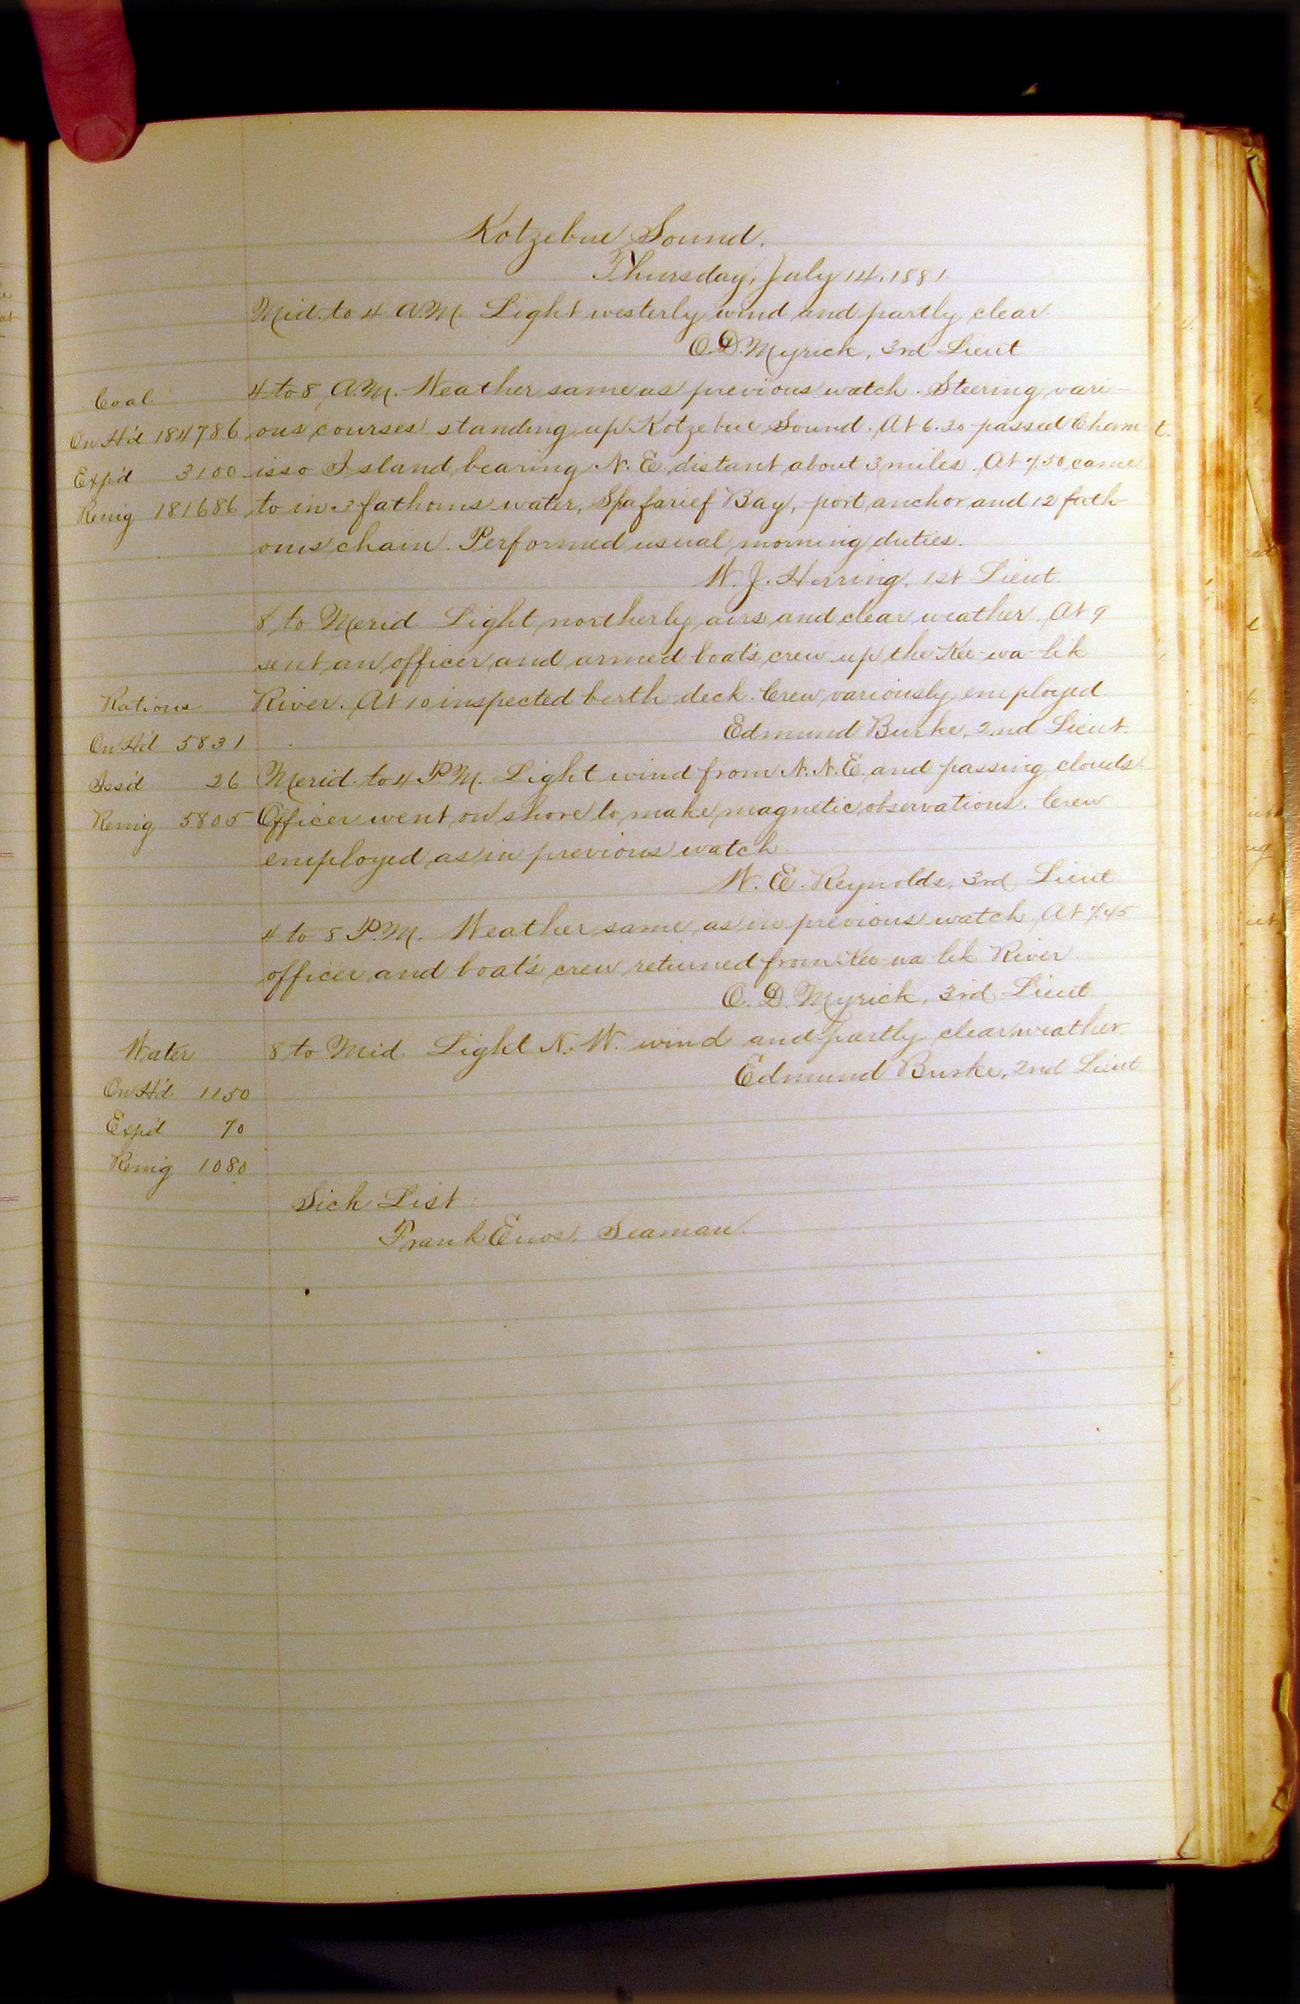 Kotzebue Sound.
Thursday, July 14, 1881
Mid. to 4 A.M. Light westerly wind and partly clear.
O.D. Myrick, 3rd Lieut
4 to 8 A.M. Weather same as previous watch. Steering vari-
Coal
On H'd 184786 ous courses standing up Kotzebue Sound. At 6.20 passed Cham-
Exp'd 3100 isso Island bearing N.E. distant about 3 miles. At 7.50 came
Remg 181686 to in 3 fathoms water, Spafarief Bay, port anchor and 12 fath
oms chain. Performed usual morning duties.
W. J. Herring, 1st Lieut.
8 to Merid Light northerly airs and clear weather. At 9
sent an officer and armed boat's crew up the Kee-wa-lik
Rations River. At 10 inspected berth deck. Crew variously employed
On H'd 5831 Edmund Burke, 2nd Lieut.
Iss'd 26 Merid. to 4 P.M. Light wind from N.N.E. and passing clouds
Remg 5805 Officer went on shore to make magnetic observations. Crew
employed as in previous watch.
W. E. Reynolds, 3rd Lieut
4 to 8 P.M. Weather same as in previous watch. At 7.45
officer and boat's crew returned from Kee-wa-lik River.
O. D. Myrick, 3rd Lieut
Water 8 to Mid. Light N.W. wind and partly clear weather
Edmund Burke, 2nd Lieut
On H'd 1150
Exp'd 70
Remg 1080
Sick List:
Frank Enos, Seaman.